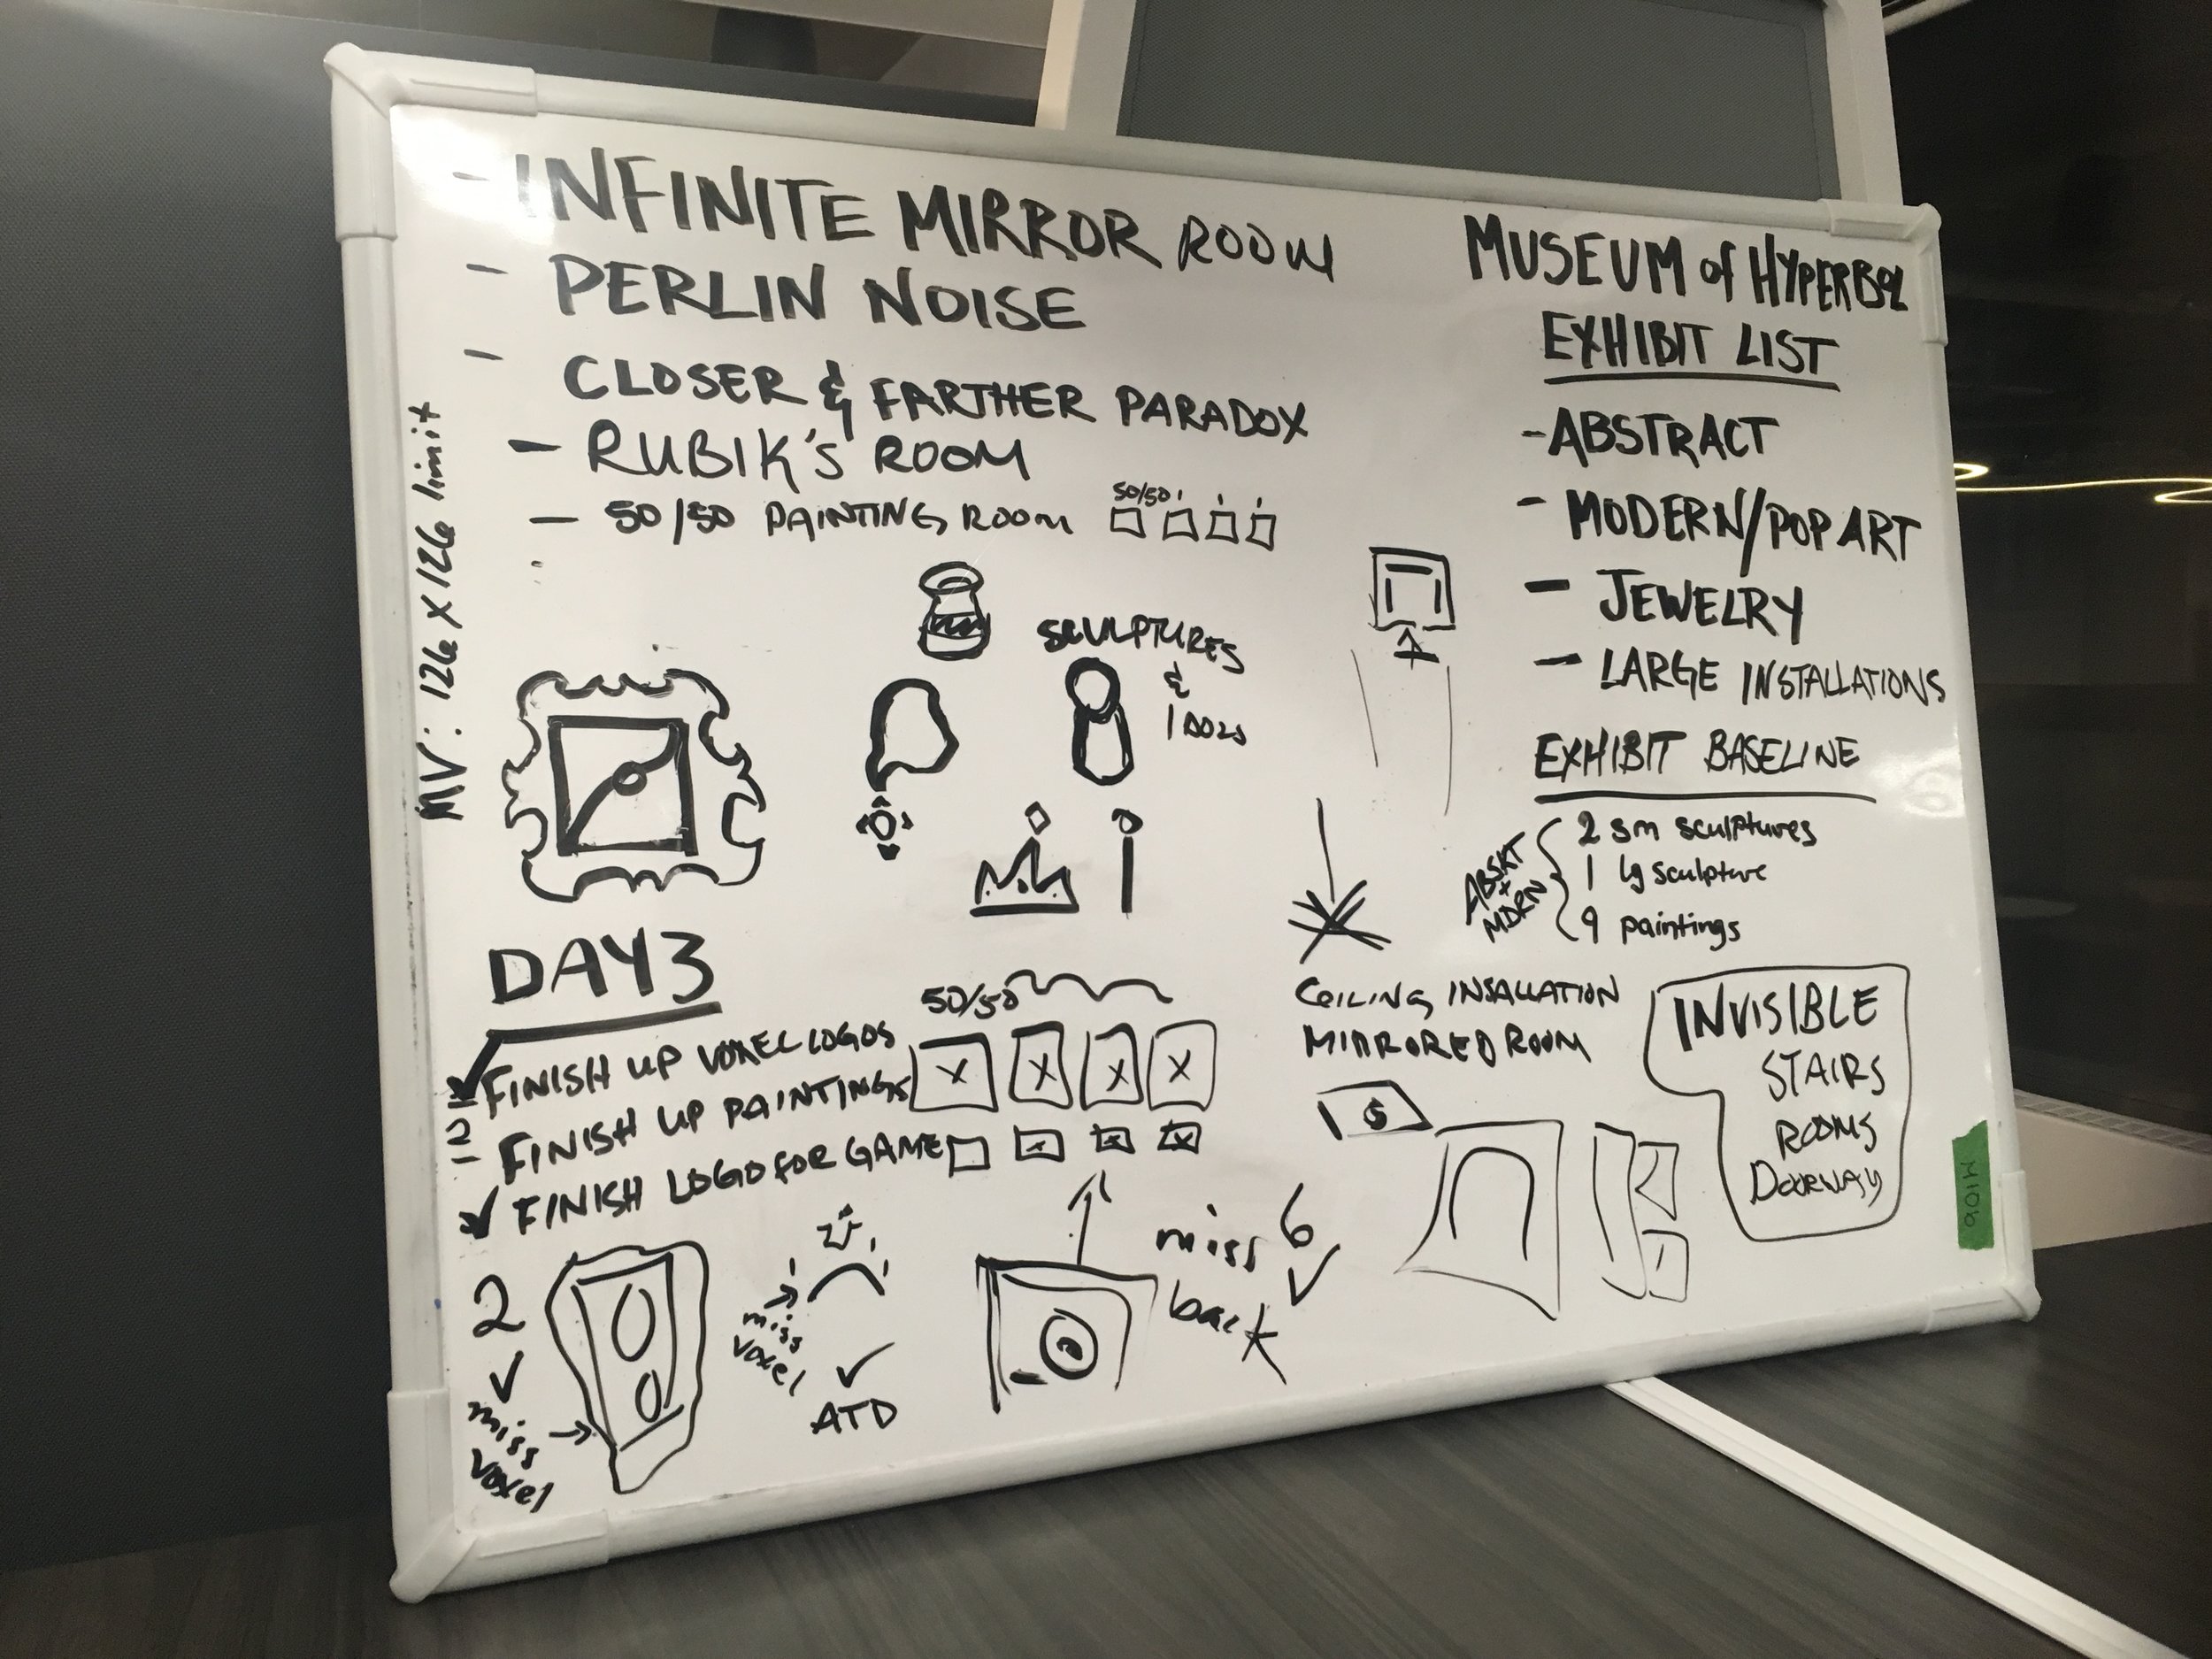 - INFINITE MIRROR ROOM
- PERLIN NOISE
- CLOSER & FARTHER PARADOX
- RUBIK'S ROOM
- 50/50 PAINTING ROOM
50/50
MV: 126 X 126 limit
SCULPTURES
&
IDOLS
MUSEUM of HYPERBOL
EXHIBIT LIST
- ABSTRACT
- MODERN/POP ART
- JEWELRY
- LARGE INSTALLATIONS
EXHIBIT BASELINE
ABSKT
+
MDRN
2 sm sculptures
1 lg sculpture
9 paintings
CEILING INSALLATION
MIRRORED ROOM
INVISIBLE
STAIRS
ROOMS
DOORWAY
DAY 3
FINISH UP VOXEL LOGOS
2 - FINISH UP PAINTINGS
FINISH LOGO FOR GAME
50/50
X X X X
2
miss
voxel
miss
voxel
ATD
miss 6
back
M106